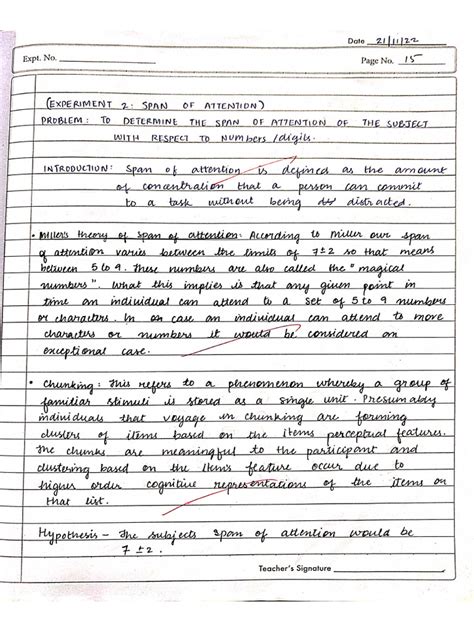 Date 21/11/22
Expt. No.
Page No. 15
(EXPERIMENT 2: SPAN OF ATTENTION)
PROBLEM: TO DETERMINE THE SPAN OF ATTENTION OF THE SUBJECT
WITH RESPECT TO NUMBERS/digils.
INTRODUCTION: Span of attention is defined as the amount
of concentration that a person can commit
to a task without being distracted.
• Miller's theory of Span of attention: According to Miller our span
of attention varies between the limits of 7±2 so that means
between 5 to 9. These numbers are also called the "magical
numbers". What this implies is that any given point in
time an individual can attend to a set of 5 to 9 numbers
or characters. In case an individual can attend to more
characters or numbers it would be considered an
exceptional case.
• Chunking: This refers to a phenomenon whereby a group of
familiar stimuli is stored as a single unit. Presumably
individuals that voyage in chunking are forming
clusters of items based on the items perceptual features.
The chunks are meaningful to the participant and
clustering based on the item's feature occur due to
higher order cognitive representations of the items on
that list.
Hypothesis - The subjects span of attention would be
7 ±2.
Teacher's Signature